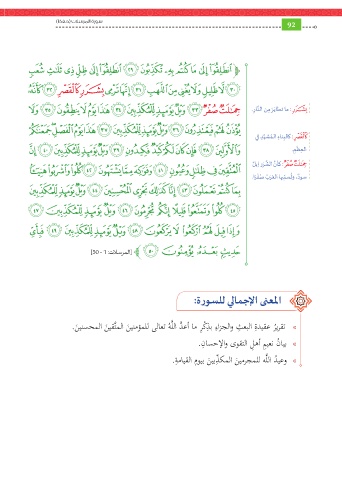 سورة المرسلات (١-٥٠)
92
﴿ ٱنطَلِقُوٓا۟ إِلَىٰ مَا كُنتُم بِهِۦ تُكَذِّبُونَ ٢٩ ٱنطَلِقُوٓا۟ إِلَىٰ ظِلٍّ ذِى ثَلَٰثِ شُعَبٍ
٣٠ لَّا ظَلِيلٍ وَلَا يُغْنِى مِنَ ٱللَّهَبِ ٣١ إِنَّهَا تَرْمِى بِشَرَرٍ كَٱلْقَصْرِ ٣٢ كَأَنَّهُۥ
جِمَٰلَتٌ صُفْرٌ ٣٣ وَيْلٌ يَوْمَئِذٍ لِّلْمُكَذِّبِينَ ٣٤ هَٰذَا يَوْمُ لَا يَنطِقُونَ ٣٥ وَلَا
يُؤْذَنُ لَهُمْ فَيَعْتَذِرُونَ ٣٦ وَيْلٌ يَوْمَئِذٍ لِّلْمُكَذِّبِينَ ٣٧ هَٰذَا يَوْمُ ٱلْفَصْلِ جَمَعْنَٰكُمْ
وَٱلْأَوَّلِينَ ٣٨ فَإِن كَانَ لَكُمْ كَيْدٌ فَكِيدُونِ ٣٩ وَيْلٌ يَوْمَئِذٍ لِّلْمُكَذِّبِينَ ٤٠ إِنَّ
ٱلْمُتَّقِينَ فِى ظِلَٰلٍ وَعُيُونٍ ٤١ وَفَوَٰكِهَ مِمَّا يَشْتَهُونَ ٤٢ كُلُوا۟ وَٱشْرَبُوا۟ هَنِيٓـًٔۢا
بِمَا كُنتُمْ تَعْمَلُونَ ٤٣ إِنَّا كَذَٰلِكَ نَجْزِى ٱلْمُحْسِنِينَ ٤٤ وَيْلٌ يَوْمَئِذٍ لِّلْمُكَذِّبِينَ
٤٥ كُلُوا۟ وَتَمَتَّعُوا۟ قَلِيلًا إِنَّكُم مُّجْرِمُونَ ٤٦ وَيْلٌ يَوْمَئِذٍ لِّلْمُكَذِّبِينَ ٤٧
وَإِذَا قِيلَ لَهُمُ ٱرْكَعُوا۟ لَا يَرْكَعُونَ ٤٨ وَيْلٌ يَوْمَئِذٍ لِّلْمُكَذِّبِينَ ٤٩ فَبِأَىِّ
حَدِيثٍۭ بَعْدَهُۥ يُؤْمِنُونَ ٥٠ ﴾ [المرسلات: 1 - 50]
بِشَرَرٍ: ما تطاير من النَّار.
كَٱلْقَصْرِ: كالبناء المَشيد في العِظَم.
جِمَٰلَتٌ صُفْرٌ:
المعنى الإجمالي للسورة:
» تقريرُ عقيدةِ البعثِ والجزاءِ بذِكْرِ ما أعدَّ اللَّهُ تعالى للمؤمنينَ المتَّقينَ المحسنينَ.
» بيانُ نعيمِ أهلِ التقوى والإحسانِ.
» وعيدُ اللَّهِ للمجرمينَ المكذِّبينَ بيومِ القيامةِ.